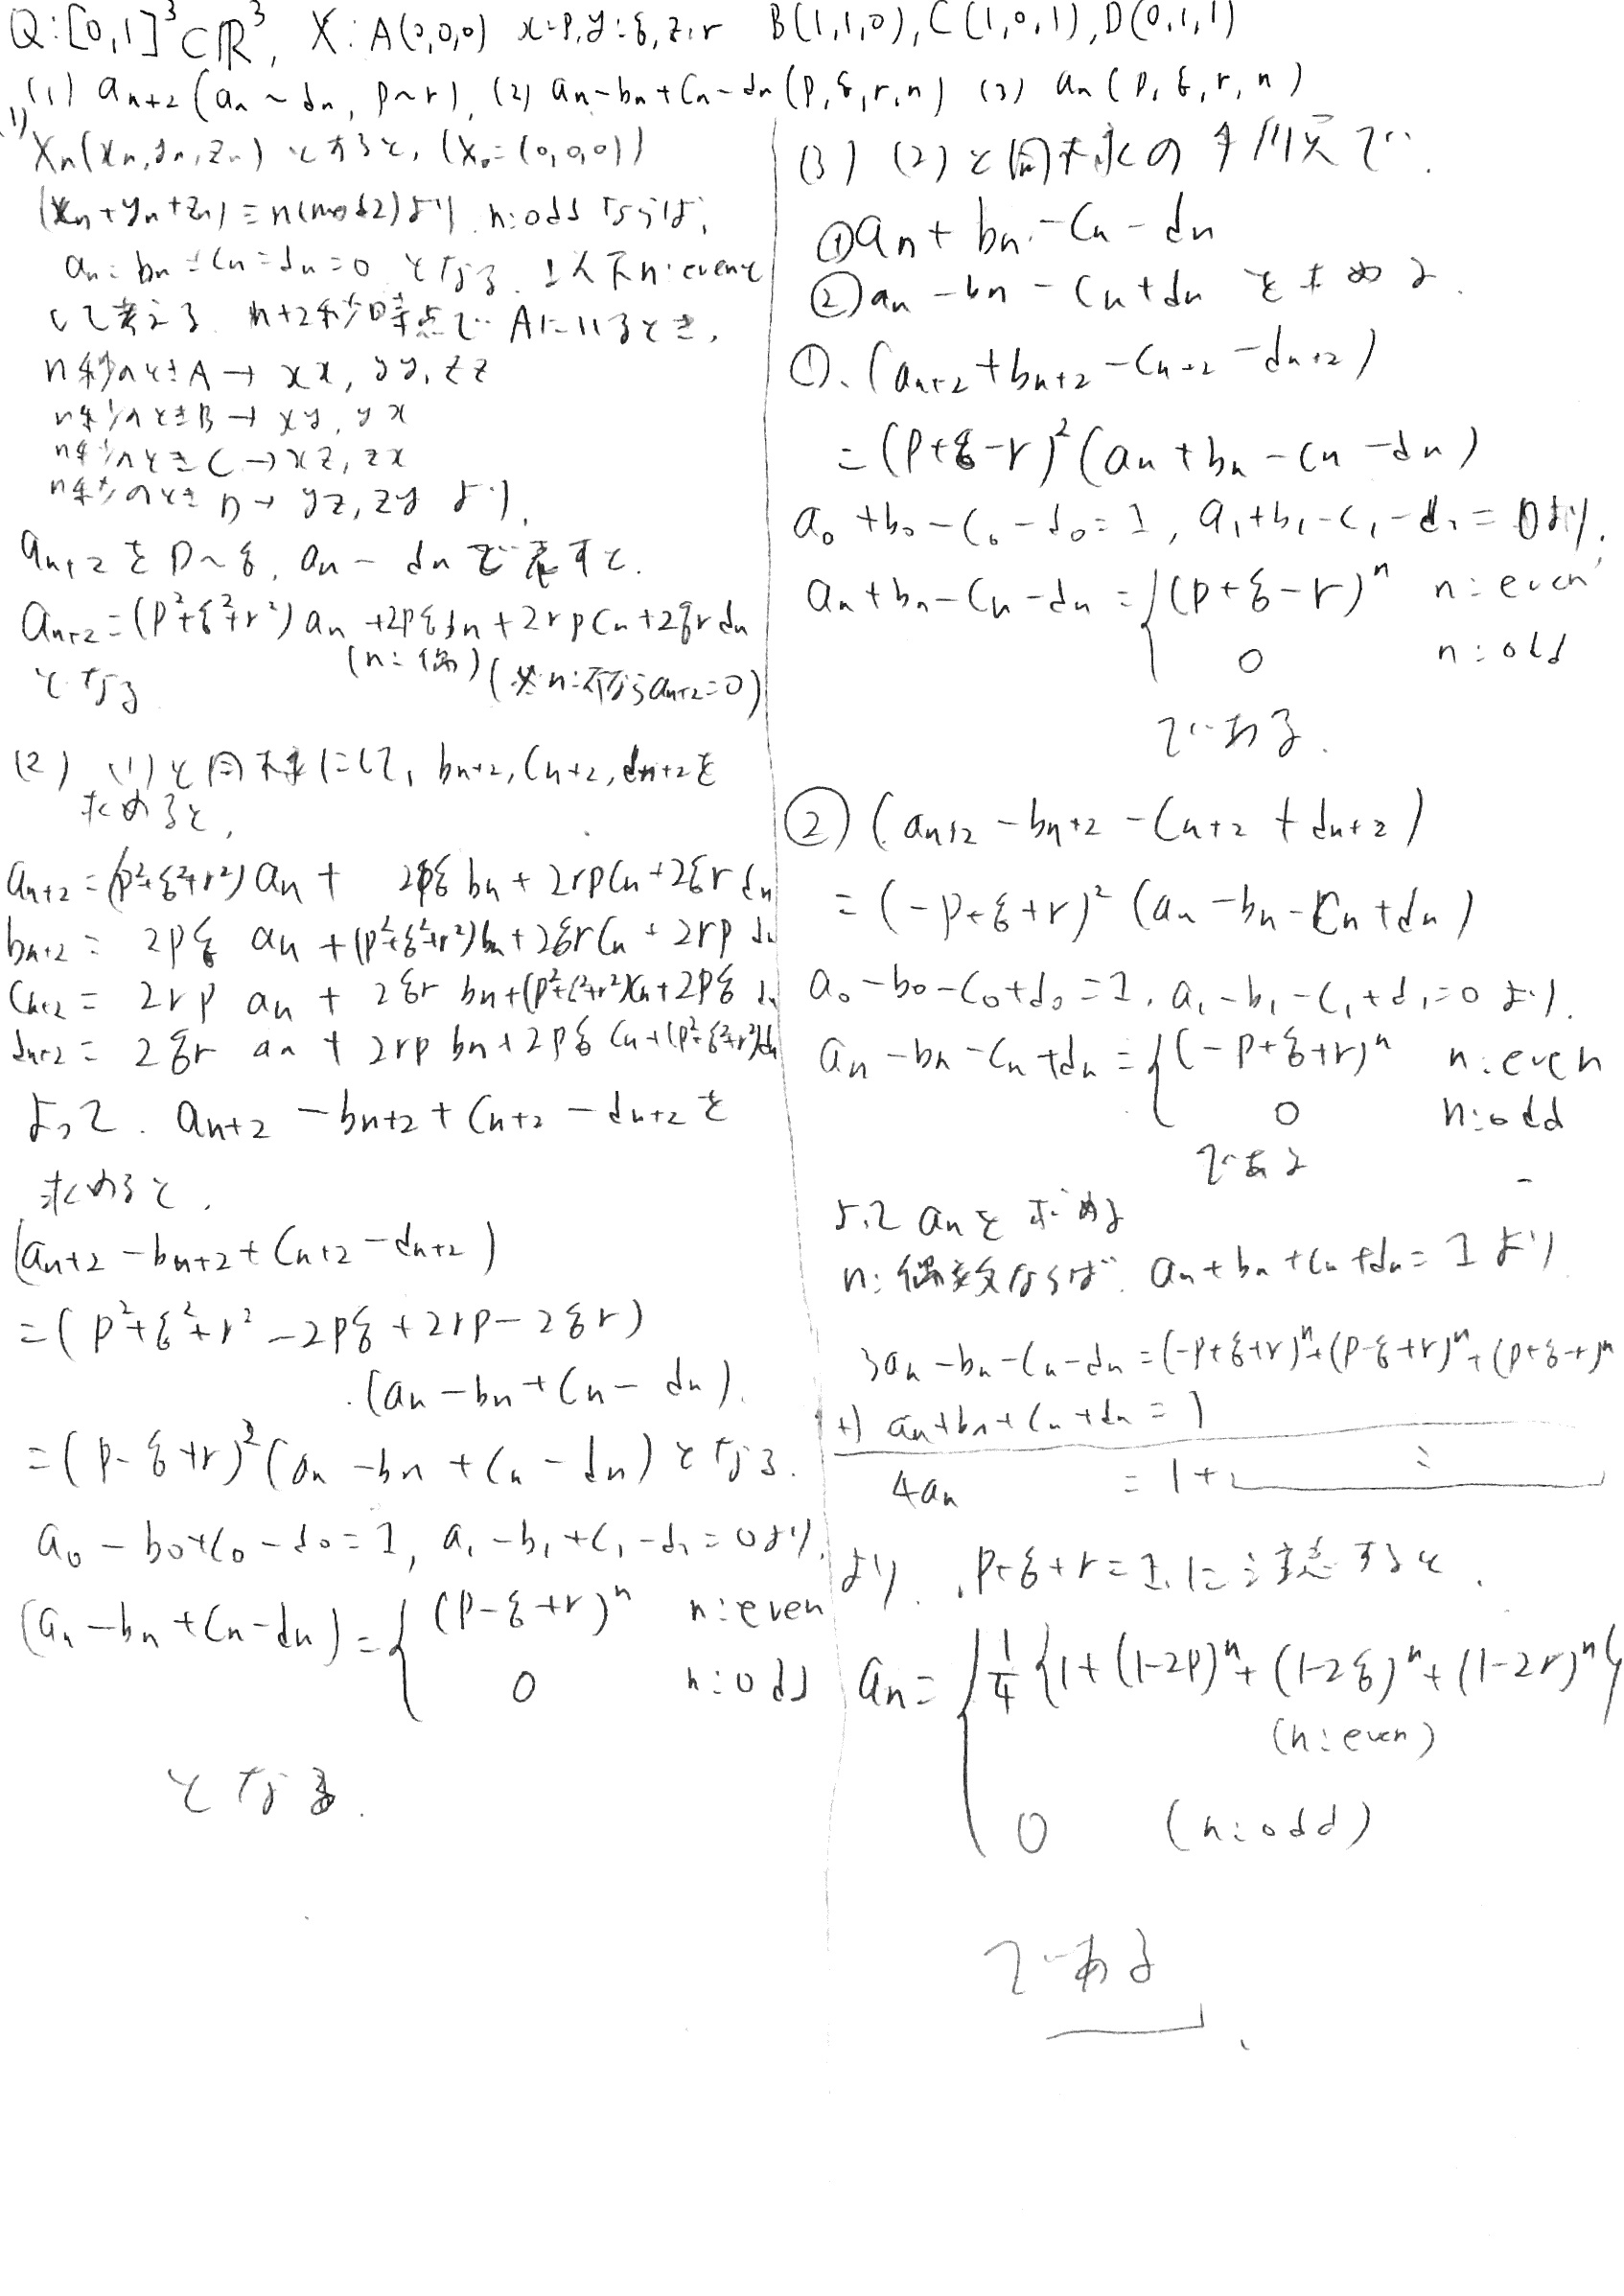 Q:[0,1]³⊂ℝ³, X:A(0,0,0) x:p,y:q,z:r B(1,1,0),C(1,0,1),D(0,1,1)
(1) an+2(an~dn, p~r), (2) an-bn+Cn-dn(p,q,r,n) (3) an(p,q,r,n)
(1)
Xn(xn,yn,zn)とすると,(X₀=(0,0,0))
(xn+yn+zn)≡n(mod2)より n:oddならば,
an=bn=Cn=dn=0となる.以下n:evenと
して考える.n+2秒時点でAにいるとき,
n秒のときA→xx,yy,zz
n秒のときB→xy,yx
n秒のときC→xz,zx
n秒のときD→yz,zyより,
an+2をp~q,an~dnで表すと.
an+2=(p²+q²+r²)an+2pqbn+2rpCn+2qrdn
(n:偶)(※n:奇ならan+2=0)
となる
(2) (1)と同様にして,bn+2,Cn+2,dn+2を
求めると,
an+2=(p²+q²+r²)an+2pqbn+2rpCn+2qrdn
bn+2=2pq an+(p²+q²+r²)bn+2qrCn+2rp dn
Cn+2=2rp an+2qr bn+(p²+q²+r²)Cn+2pq dn
dn+2=2qr an+2rp bn+2pq Cn+(p²+q²+r²)dn
よって.an+2-bn+2+Cn+2-dn+2を
求めると,
(an+2-bn+2+Cn+2-dn+2)
=(p²+q²+r²-2pq+2rp-2qr)
・(an-bn+Cn-dn).
=(p-q+r)²(an-bn+Cn-dn)となる.
a₀-b₀+C₀-d₀=1, a₁-b₁+C₁-d₁=0より,
(an-bn+Cn-dn)={(p-q+r)ⁿ n:even
0 n:odd
となる.
(3) (2)と同様の手順で.
①an+bn-Cn-dn
②an-bn-Cn+dnを求める.
①.(an+2+bn+2-Cn+2-dn+2)
=(p+q-r)²(an+bn-Cn-dn)
a₀+b₀-C₀-d₀=1, a₁+b₁-C₁-d₁=0より.
an+bn-Cn-dn={(p+q-r)ⁿ n:even
0 n:odd
である.
②(an+2-bn+2-Cn+2+dn+2)
=(-p+q+r)²(an-bn-Cn+dn)
a₀-b₀-C₀+d₀=1, a₁-b₁-C₁+d₁=0より.
an-bn-Cn+dn={(-p+q+r)ⁿ n:even
0 n:odd
である
よってanを求める
n:偶数ならば.an+bn+Cn+dn=1より
3an-bn-Cn-dn=(-p+q+r)ⁿ+(p-q+r)ⁿ+(p+q-r)ⁿ
+) an+bn+Cn+dn=1
4an =1+ 〃
より.p+q+r=1に注意すると.
an={1/4{1+(1-2p)ⁿ+(1-2q)ⁿ+(1-2r)ⁿ}
(n:even)
0 (n:odd)
である